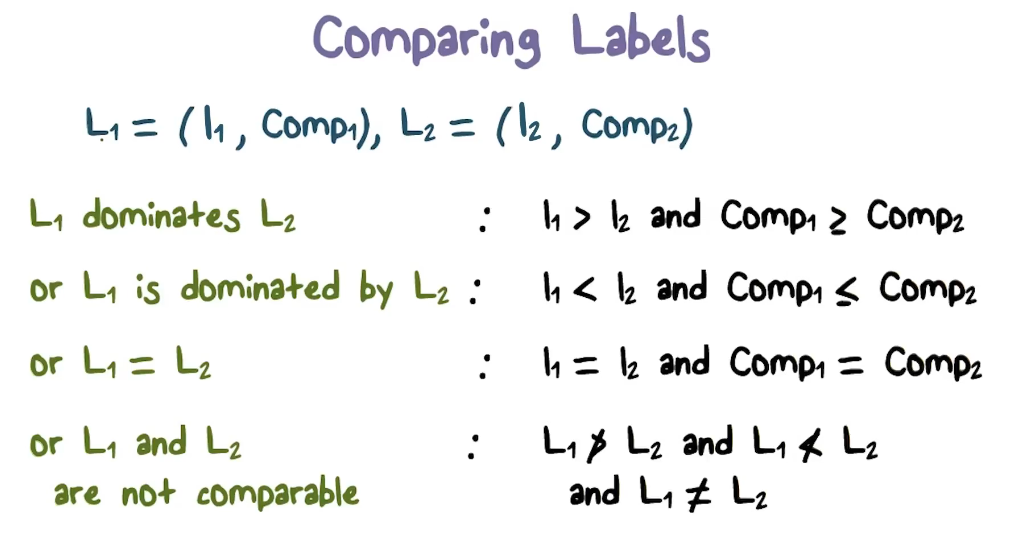 Comparing Labels
L₁ = (l₁, Comp₁), L₂ = (l₂, Comp₂)
L₁ dominates L₂ : l₁ > l₂ and Comp₁ ≥ Comp₂
or L₁ is dominated by L₂ : l₁ < l₂ and Comp₁ ≤ Comp₂
or L₁ = L₂ : l₁ = l₂ and Comp₁ = Comp₂
or L₁ and L₂ : L₁ ≯ L₂ and L₁ ≮ L₂
are not comparable and L₁ ≠ L₂